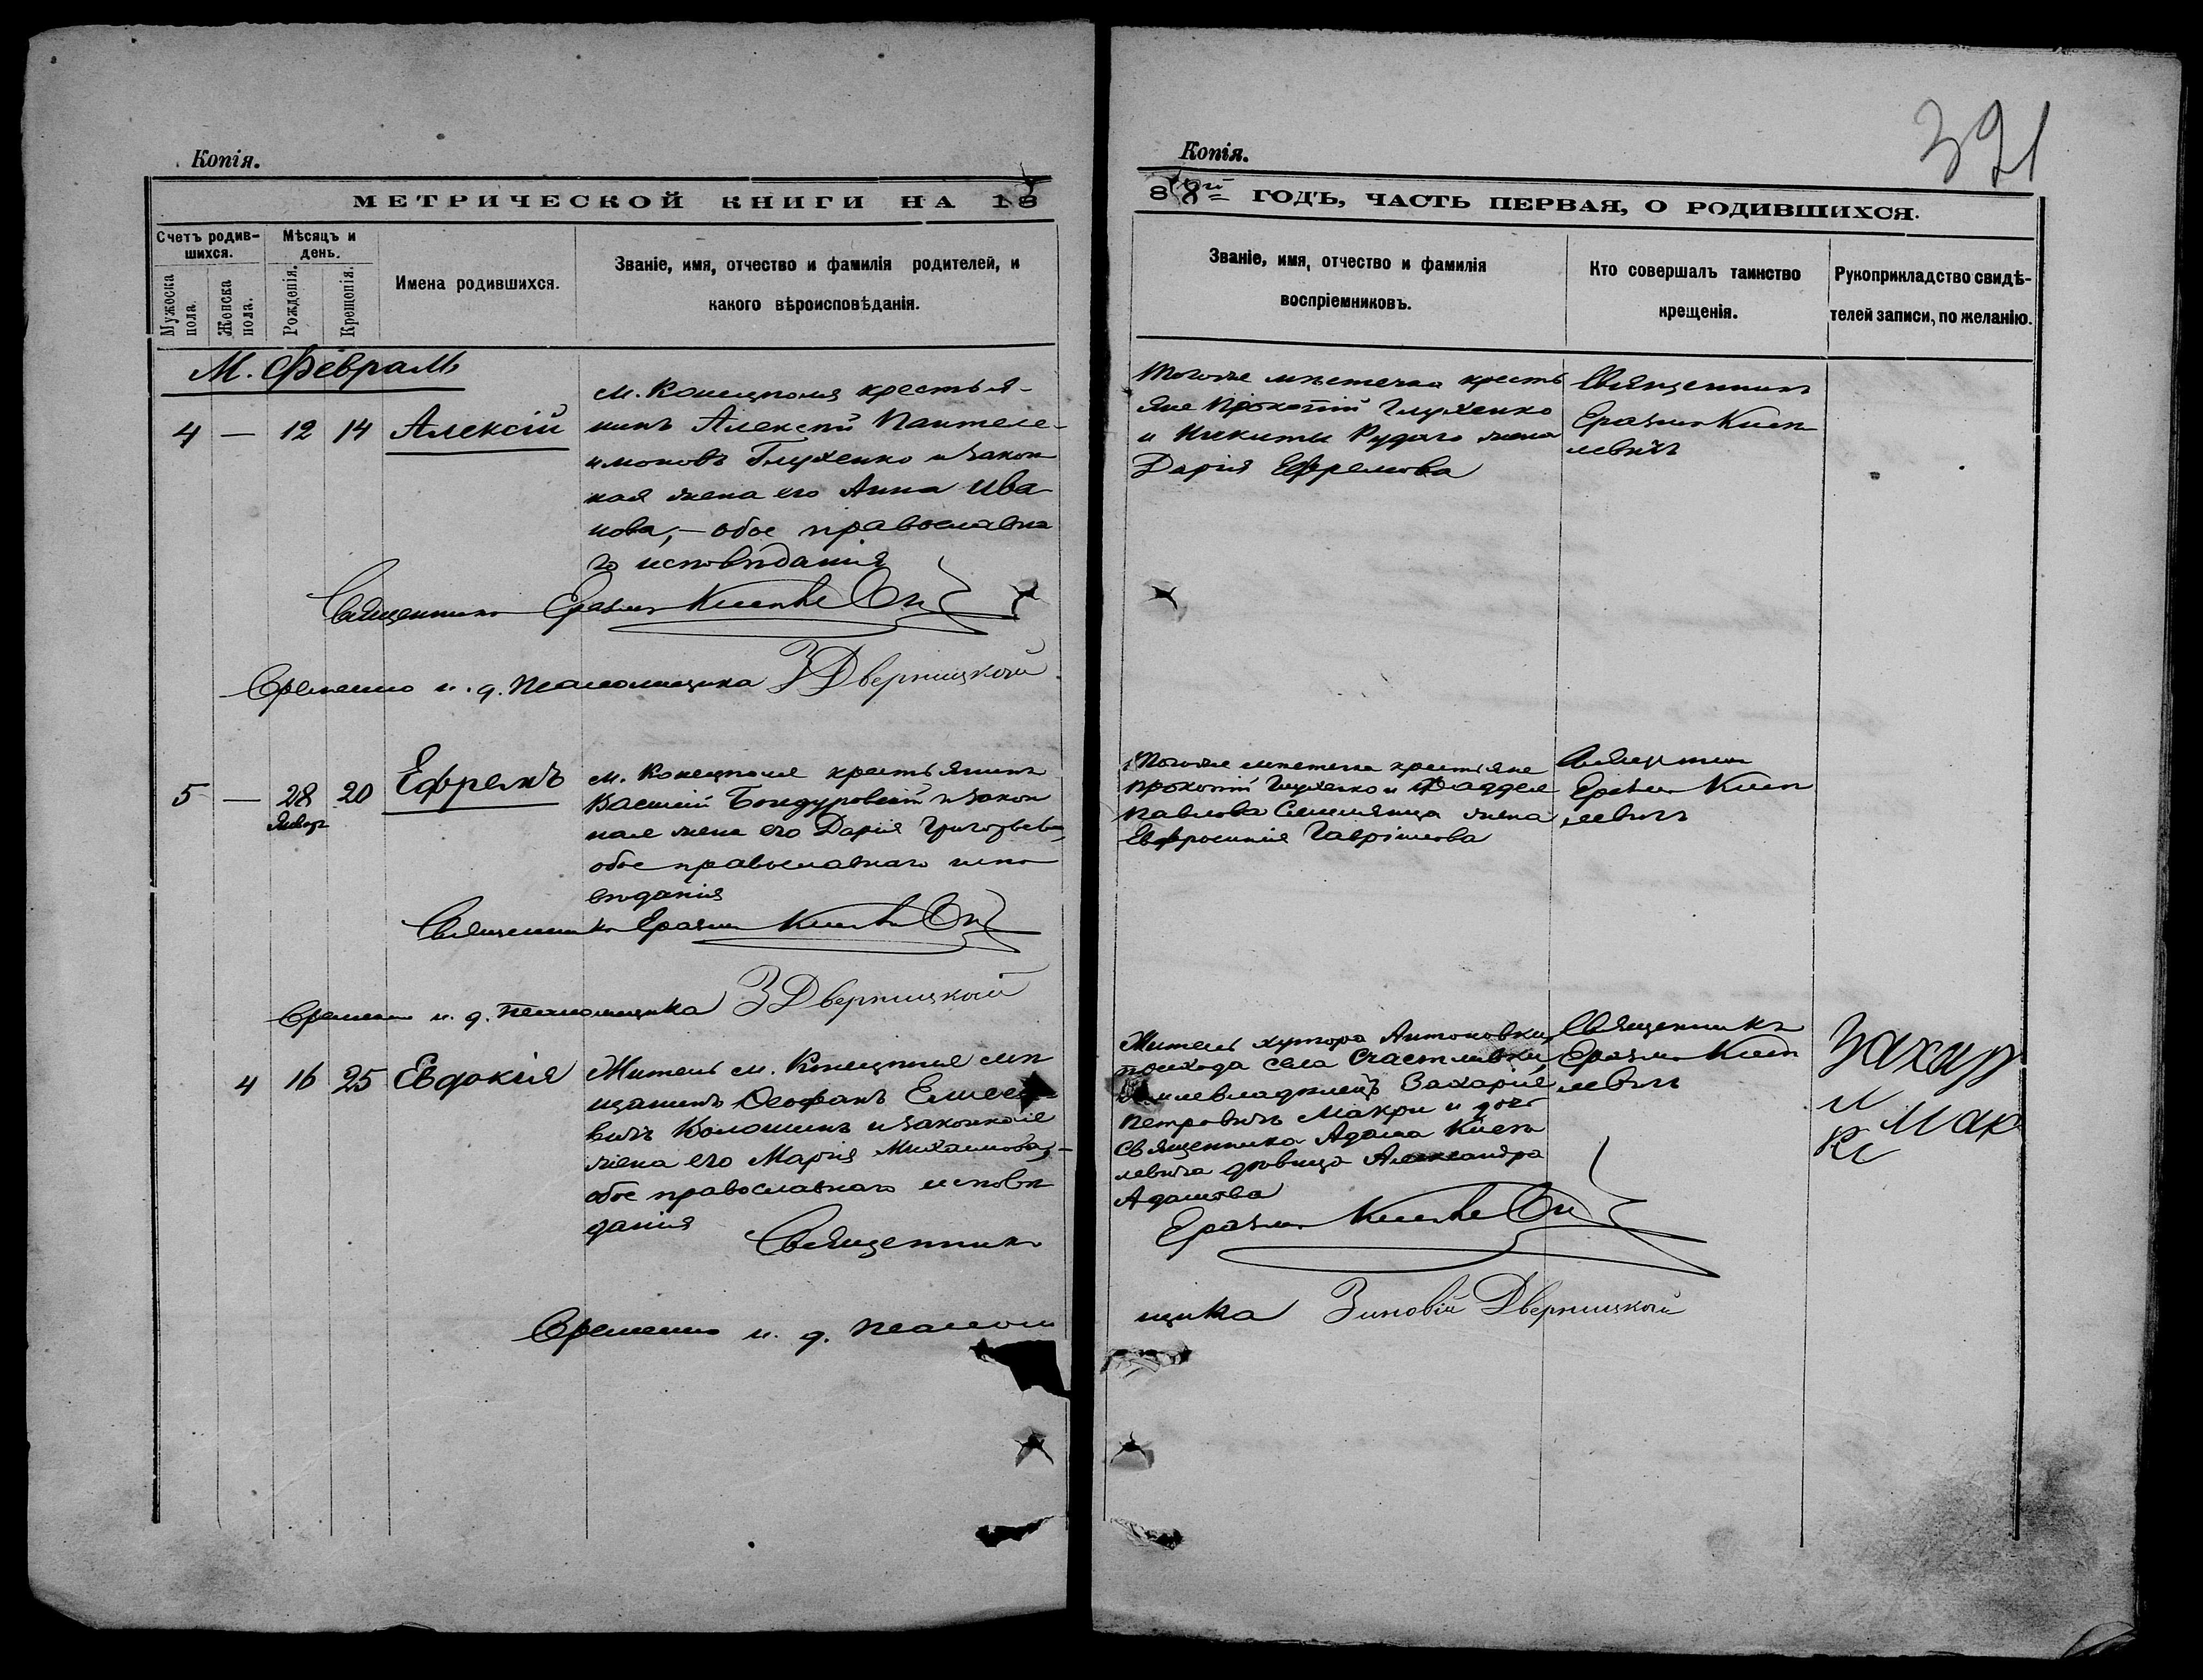 Копія.
МЕТРИЧЕСКОЙ КНИГИ НА 18
Счетъ родив-
шихся.
Мужеска
пола.
Женска
пола.
Мѣсяцъ и
день.
Рожденія.
Крещенія.
Имена родившихся.
Званіе, имя, отчество и фамилія родителей, и
какого вѣроисповѣданія.
М. Февраль
4 — 12 14 Алексій
м. Конецполя крестья-
нинъ Алексѣй Пантеле-
имоновъ Глуxенко и закон
ная жена его Анна Ива-
нова, — обое православна
го исповѣданія
Священникъ Еразмъ
Временно и. д. псаломщика З Дверницкой
5 — 28 20 Ефремъ
Январ
м. Конецполя крестьянинъ
Василій Бондуровскій и закон
ная жена его Дарія Григорьева,
обое православнаго испо
вѣданія
Священникъ Еразмъ
Временно и. д. псаломщика З Дверницкой
4 16 25 Евдокія
Житель м. Конецполя мѣ
щанинъ Ѳеофанъ
вичъ Колошинъ и законная
жена его Марія Михаилова, —
обое православнаго исповѣ
данія
Священникъ
Временно и. д. псалом
Копія.
391
88й ГОДЪ, ЧАСТЬ ПЕРВАЯ, О РОДИВШИХСЯ.
Званіе, имя, отчество и фамилія
воспріемниковъ.
Кто совершалъ таинство
крещенія.
Рукоприкладство свидѣ-
телей записи, по желанію.
Тогоже мѣстечка кресть
яне Прокопій Глухенко
и Никиты Рудаго жена
Дарія Ефремова
Священникъ
Еразмъ
левичъ
Тогоже мѣстечка крестьяне
Прокопій Глухенко и Фаддея
Павлова жена
Евфросинія Гаврилова
Священникъ
Еразмъ
левичъ
Житель хутора Антоновки,
прихода села Счастливки,
землевладѣлецъ Захарій
Петровичъ Макри и дочь
Священника Адама
левича дѣвица Александра
Адамова
Священникъ
Еразмъ
левичъ
Захар
и
Мак
ри
Еразмъ
щика Зиновій Дверницкой